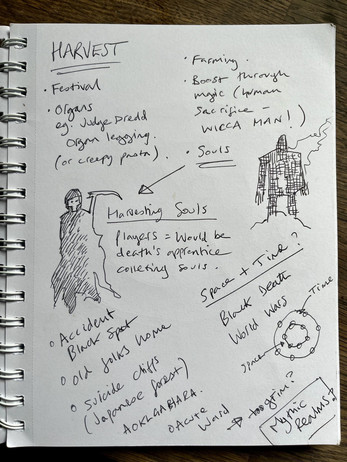 HARVEST
• Festival
• Organs
eg. Judge Dredd
Organ legging.
(or creepy pasta).
• Farming.
• Boost through
magic (human
sacrifice –
WICCA MAN!)
• Souls
Harvesting Souls
Players = Would be
death's apprentice
collecting souls.
Space + Time?
Black Death
World Wars
Time
Space
o Accident
Black Spot
o Old folks home
o Suicide cliffs
(Japanese forest)
AOKIGAHARA.
o Acute
Ward
→ too grim?
Mythic
Realms?